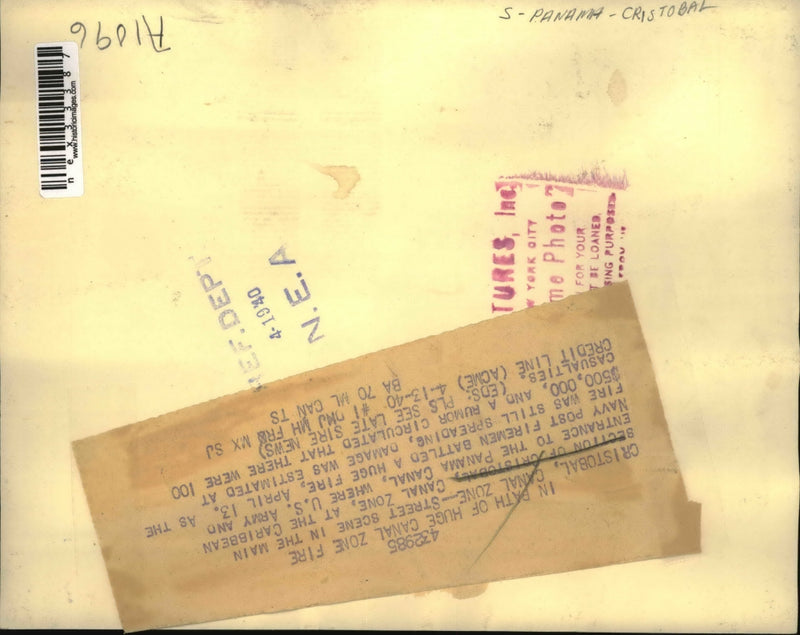 A1096
S-PANAMA-CRISTOBAL
www.historicimages.com
TURES, Inc
YORK CITY
me Photo
FOR YOUR
BE LOANED
SING PURPOSE
REF. DEPT
4-19 40
N.E.A
432985
IN PATH OF HUGE CANAL ZONE FIRE
CRISTOBAL, CANAL ZONE--STREET SCENE IN THE MAIN
SECTION OF CRISTOBAL, CANAL ZONE, AT THE CARIBBEAN
ENTRANCE TO THE PANAMA CANAL, WHERE U.S. ARMY AND
NAVY POST FIREMEN BATTLED A HUGE FIRE, APRIL 13. AS THE
FIRE WAS STILL SPREADING, DAMAGE WAS ESTIMATED AT
$500,000, AND A RUMOR CIRCULATED THAT THERE WERE 100
CASUALTIES. (EDS: PLS SEE LATE SIRE NEWS)
CREDIT LINE (ACME) 4-13-40 #1 OWJ MH FRO MX SJ
BA 70 ML CAN TS